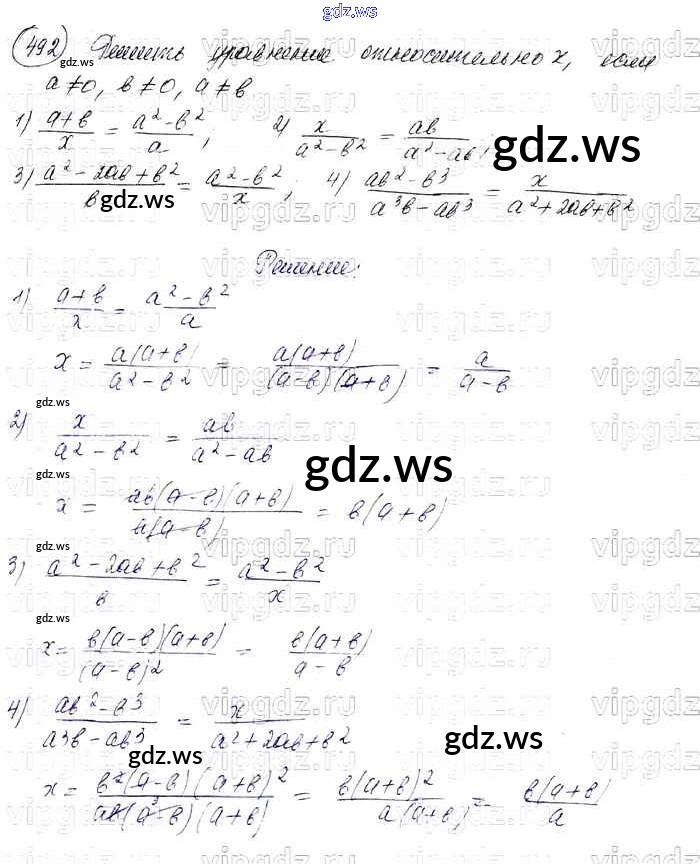 gdz.ws
492) Решить уравнение относительно x, если
gdz.ws
a ≠ 0, в ≠ 0, a ≠ в
1) (a+в)/x = (a² - в²)/a ; 2) x/(a² - в²) = aв/(a² - aв) ;
gdz.ws
3) (a² - 2aв + в²)/в = (a² - в²)/x ; 4) (aв² - в³)/(a³в - aв³) = x/(a² + 2aв + в²)
gdz.ws
Решение:
1) (a+в)/x = (a² - в²)/a
x = a(a+в)/(a² - в²) = a(a+в)/((a-в)(a+в)) = a/(a-в)
gdz.ws
2) x/(a² - в²) = aв/(a² - aв)
gdz.ws
gdz.ws
x = aв(a-в)(a+в)/(a(a-в)) = в(a+в)
gdz.ws
3) (a² - 2aв + в²)/в = (a² - в²)/x
x = в(a-в)(a+в)/(a-в)2 = в(a+в)/(a-в)
gdz.ws
4) (aв² - в³)/(a3в - aв3) = x/(a² + 2aв + в2)
gdz.ws
gdz.ws
x = в²(a-в)(a+в)²/(aв(a-в)(a+в)) = в(a+в)²/(a(a+в)) = в(a+в)/a
gdz.ws